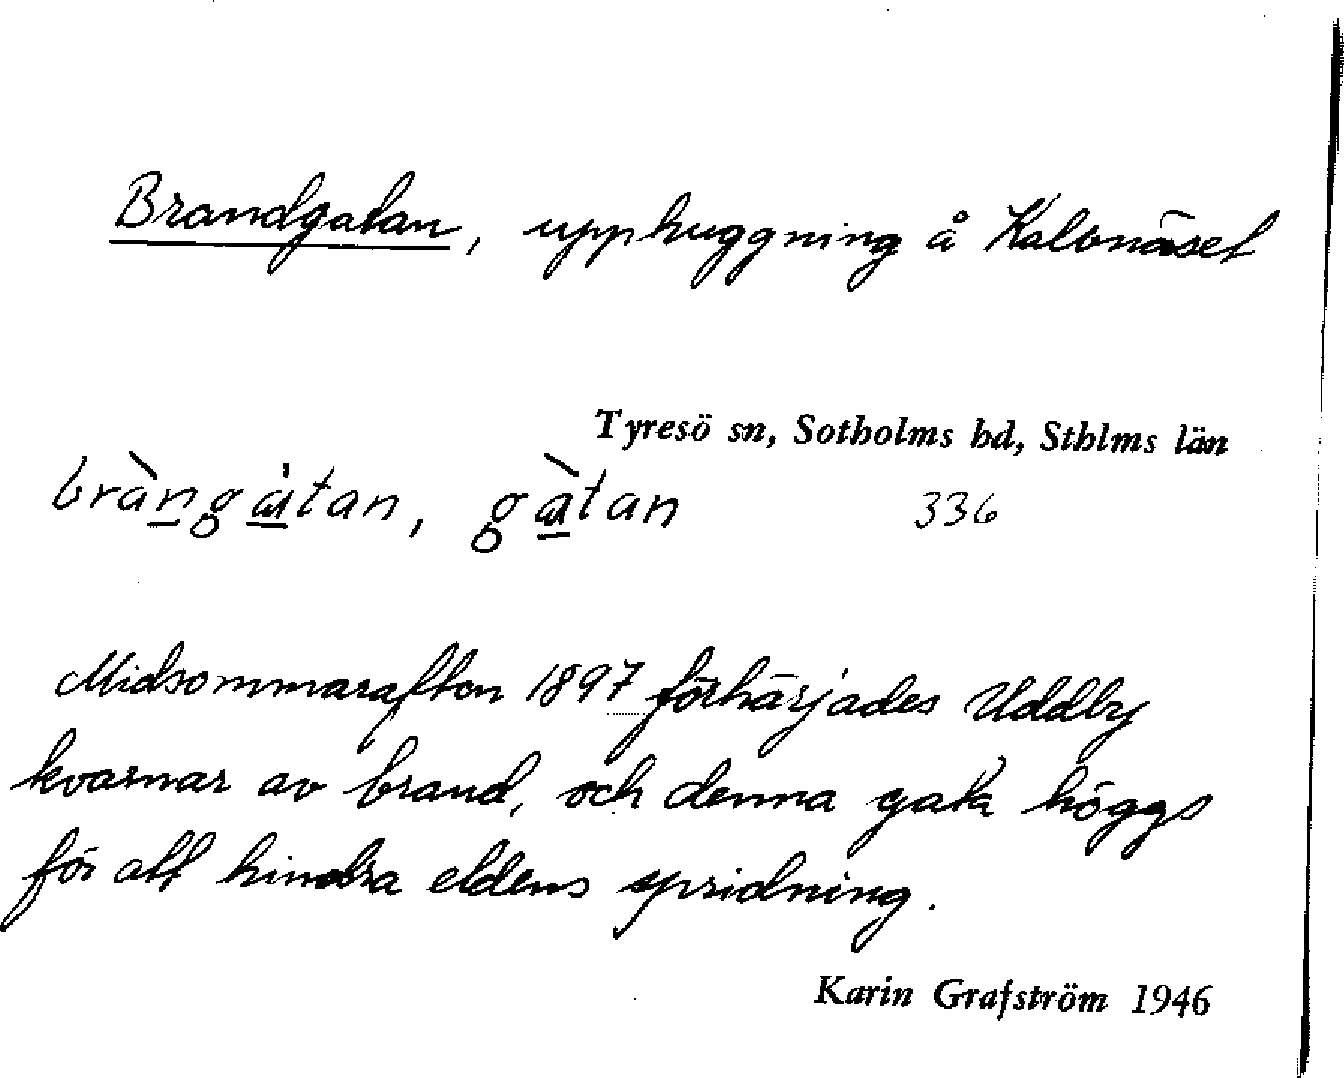 Brandgatan, upphuggning å Kalvnäset
Tyresö sn, Sotholms hd, Sthlms län
bràngatan, gàtan
336
Midsommarafton 1897 förhärjades Uddby
kvarnar av brand, och denna gata höggs
för att hindra eldens spridning.
Karin Grafström 1946